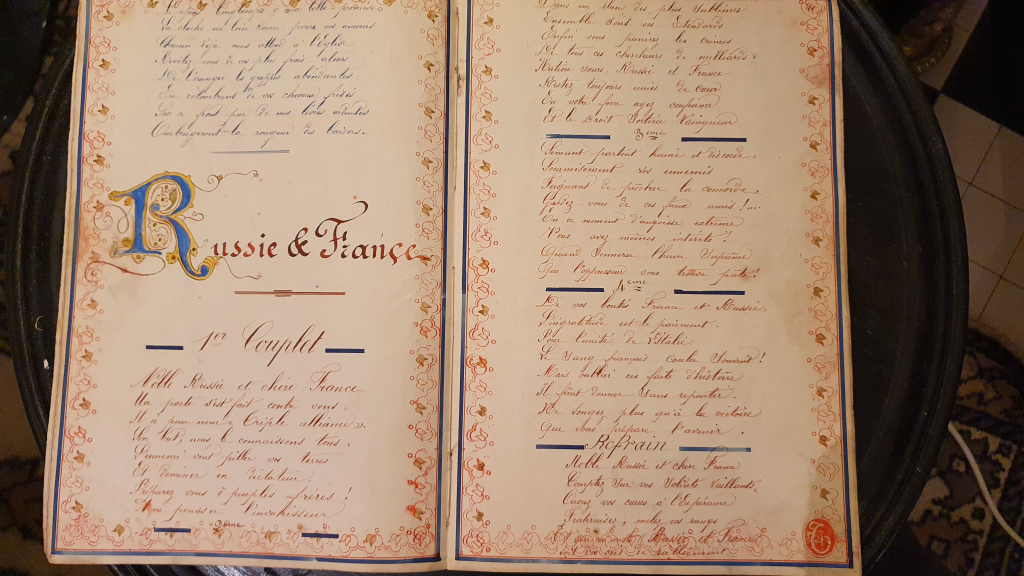 La cloche au loin sonne pour vos amours
Chacun déja nous attend à l'Eglise
Revêtez vous de vos plus frais atours
De l'oranger les grappes abondantes
En retombant de vos cheveux frisés
Ombrageront-la rougeur des baisers.
Russie & Françe
1er Couplet
Noble Russie et chère France
Un pacte s'est fait contre vous.
Il a pour nom « Triple alliance ».
Son but, nous le connaissons tous.
L'ennemi veut piller vos terres
Et dominer en dictateur
Préparez vous ô peuples frères !
A repousser l'envahisseur
2ème
Dans un élan des plus sublimes
Ensemble sous vos Etendards
Enfin vous punirez les crimes
De tous ces chercheurs de milliards
Nation sœurs, Russie et France
Restez toujours unies de Cœur
En votre force ayez confiance
Et le Droit Sortira Vainqueur
3ème
Semant partout haine et discorde,
Sournoisement vos ennemis
Feignant de prêcher la concorde,
Gardez-vous de ces faux amis !...
En ce moment d'angoisse extrême
Vous avez mêmes intérêts !
Quand sonnera l'heure Suprême
Que l'oppresseur vous trouve prêts !
4ème
De vos bontés France et Russie,
L'ingratitude est le paiement.
Pour l'unité de l'Italie
Le Sang français coula Souvent !
Mais oublier ces faits d'histoire
Il faut donner Sans reporter.
Ne songez plus qu'à la victoire
Que vous prépare l'avenir.
Refrain
Noble Russie et chère France
Comptez Sur vos Soldats Vaillants,
Ouvrez vos cœurs à l'Espérance
Fraternisez, mêlez vos rangs
Et que ces mots, Russie et France
de ralliement